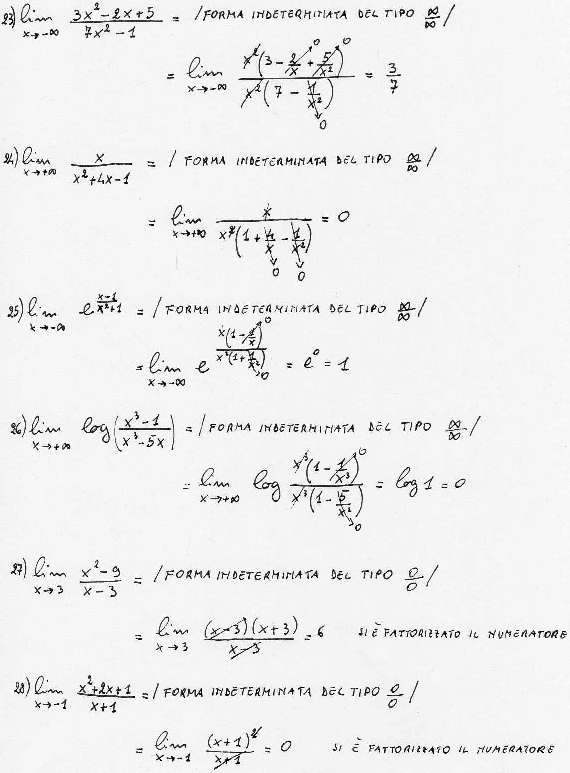 23) lim x→-∞ (3x²-2x+5)/(7x²-1) = /FORMA INDETERMINATA DEL TIPO ∞/∞/
= lim x→-∞ x²(3 - 2/x + 5/x²)/x²(7 - 1/x²) = 3/7
24) lim x→+∞ x/(x²+4x-1) = / FORMA INDETERMINATA DEL TIPO ∞/∞ /
= lim x→+∞ x/x²(1 + 4/x - 1/x²) = 0
25) lim x→-∞ e^((x-1)/(x²+1)) = / FORMA INDETERMINATA DEL TIPO ∞/∞/
= lim x→-∞ e^(x(1-1/x)/x²(1+1/x²)) = e⁰ = 1
26) lim x→+∞ log((x³-1)/(x³-5x)) = / FORMA INDETERMINATA DEL TIPO ∞/∞/
= lim x→+∞ log x³(1-1/x³)/x³(1-5/x²) = log 1 = 0
27) lim x→3 (x²-9)/(x-3) = /FORMA INDETERMINATA DEL TIPO 0/0 /
= lim x→3 (x-3)(x+3)/(x-3) = 6 SI È FATTORIZZATO IL NUMERATORE
28) lim x→-1 (x²+2x+1)/(x+1) = / FORMA INDETERMINATA DEL TIPO 0/0 /
= lim x→-1 (x+1)²/(x+1) = 0 SI È FATTORIZZATO IL NUMERATORE